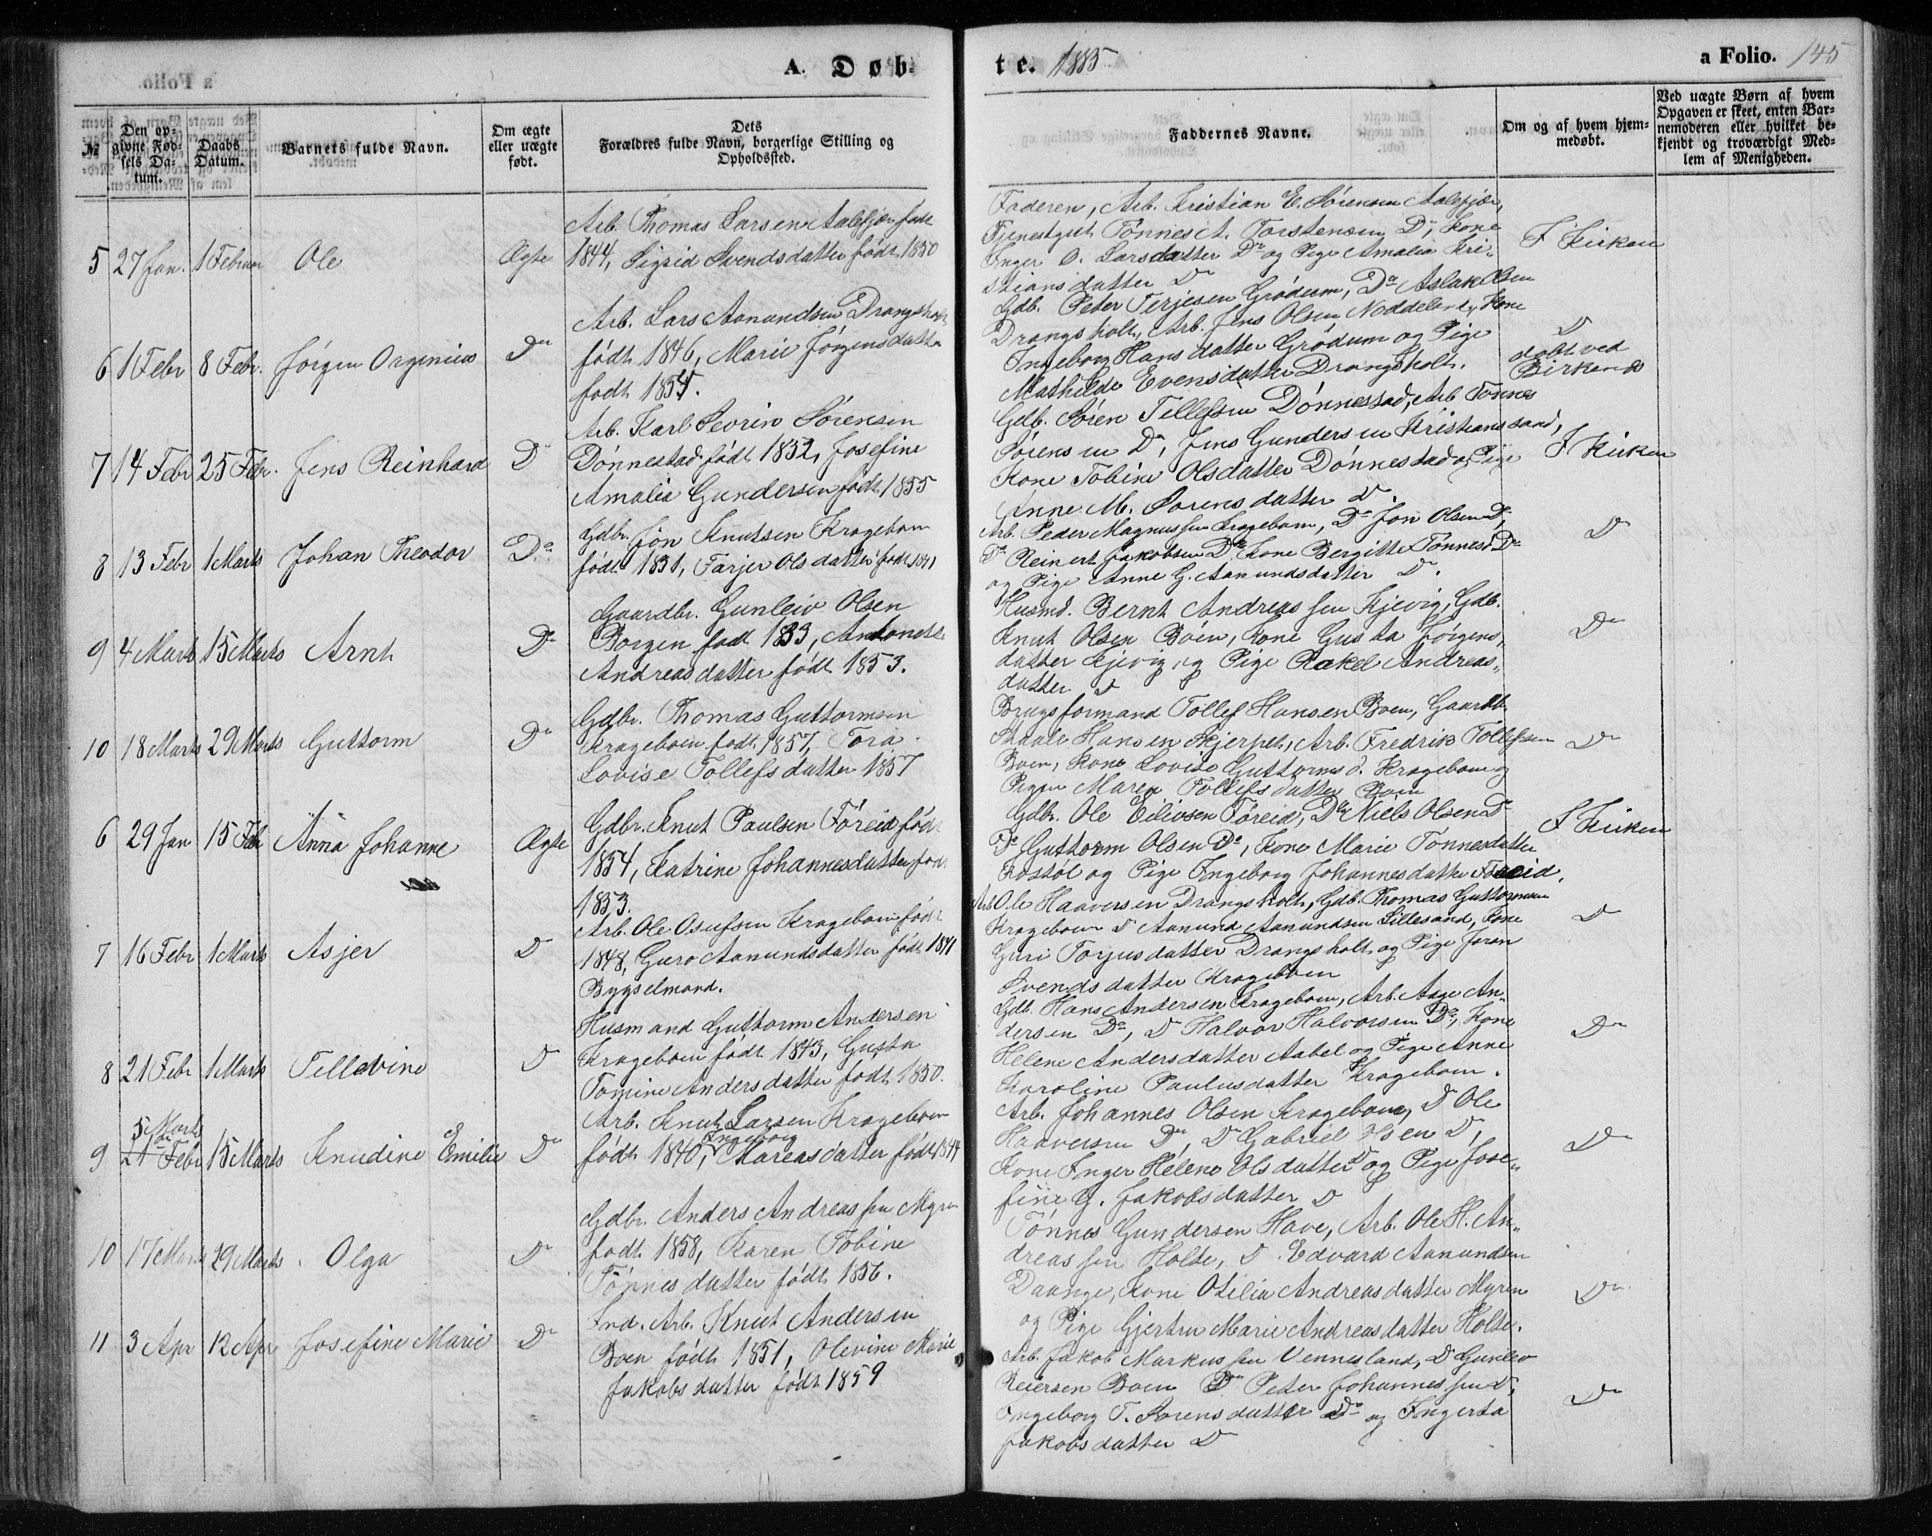 A. Døb
te. 1885
a Folio. 145
№
Den opgivne Fødsels Datum.
Daabs Datum.
Barnets fulde Navn.
Om ægte eller uægte født.
Dets Forældres fulde Navn, borgerlige Stilling og Opholdssted.
Faddernes Navne.
Om og af hvem hjemmedøbt.
Ved uægte Børn af hvem Opgaven er skeet, enten Barnemoderen eller hvilket bekjendt og troværdigt Medlem af Menigheden.
5 27 Jan. 1 Februar Ole Ægte
Arb. Thomas Larsen Aalefjær født
1844, Sigrid Svendsdatter født 1850
Faderen, Arb. Kristian E. Sørensen Aalefjær,
Tjenestgut Tønnes A. Torstensen Do, Kone
Inger O. Larsdatter Do og Pige Amalia Kri-
stiansdatter Do
I Kirken
6 1 Febr 8 Febr. Jørgen Orgenius Do
Arb. Lars Aanundsen Drangsholt
født 1846, Marie Jørgensdatter
født 1854.
Gdb. Peter Terjesen Grødum, Do Aslak Olsen
Drangsholt, Arb. Jens Olsen Noddeland, Kone
Ingeborg Hansdatter Grødum og Pige
Mathilde Evensdatter Drangsholt.
Do
døbt ved
Birkenes
7 14 Febr 25 Febr. Jens Reinhard Do
Arb. Karl Severin Sørensen
Dønnestad født 1852, Josefine
Amalia Gundersen født 1855
Gdb. Søren Tellefsen Dønnestad, Arb Tønnes
Sørensen Do, Jens Gundersen Kristianssand,
Kone Tobine Olsdatter Dønnestad og Pige
Anne M. Sørensdatter Do.
I Kirken
8 13 Febr 1 Marts Johan Theodor Do.
Gdbr. Jon Knutsen Krageboen
født 1831, Tarjer Olsdatter født 1841
Arb. Peder Magnussen Krageboen, Do Jon Olsen Do,
Do Reinert Jakobsen Do Kone Bergitte Tønnesd. Do
og Pige Anne G. Aanundsdatter Do.
Do
9 4 Marts 15 Marts Arnt Do
Gaardbr. Gunleiv Olsen
Borgen født 1833, Antonette
Andreasdatter født 1853.
Husmd. Bernt Andreassen Kjevig, Gdb.
Knut Olsen Boen, Kone Gusta Jørgens-
datter Kjevig, og Pige Rakel Andreas-
datter Do
Do
10 18 Marts 29 Marts Guttorm Do
Gdbr. Thomas Guttormsen
Krageboen født 1857, Tora
Lovise Tollefsdatter 1857
Brugsformand Tollef Hansen Boen, Gaardb.
Staale Hansen Skjerpet, Arb. Fredrik Tollefsen
Boen, Kone Lovise Guttormsd. Krageboen og
Pigen Maren Tollefsdatter Boen
Do
6 29 Jan 15 Feb Anna Johanne Ægte
Gdbr. Knut Paulsen Føreid født
1854, Katrine Johannesdatter født
1853.
Gdbr. Ole Eilivsen Føreid, Do Niels Olsen Do
Do Guttorm Olsen Do, Kone Marie Tønnesdatter
Rostøl og Pige Ingeborg Johannesdatter Føreid.
I Kirken
7 16 Febr 1 Marts Asjer Do
Arb. Ole Osufsen Krageboen født
1848, Guro Aanundsdatter født 1841
Bygselmand.
Arb. Ole Haaversen Drangsholt, Gdb. Thomas Guttormsen
Krageboen Do Aanund Aanundsen Lillesand, Kone
Guri Torjusdatter Drangsholt og Pige Joran
Svendsdatter Krageboen
Do
8 21 Febr 1 Marts Tellevine Do
Husmand Guttorm Andersen
Krageboen født 1843, Gusta
Tomine Andersdatter født 1850.
Gdb. Hans Andersen Krageboen, Arb. Aage An-
dersen Do, Do Halvor Halvorsen Do, Kone
Helene Andersdatter Aabel og Pige Anne
Karoline Paulusdatter Krageboen.
Do
5 Marts
9 21de Febr 15 Marts Knudine Emilie Do
Arb. Knut Larsen Krageboen
født 1840, Ingeborg Mareasdatter født 1844
Arb. Johannes Olsen Krageboen, Do Ole
Haaversen Do, Do Gabriel Olsen Do,
Kone Inger Helene Olsdatter Do og Pige Jose-
fine G. Jakobsdatter Do
Do
10 17 Marts 29 Marts Olga Do
Gdbr. Anders Andreassen Myren
født 1858, Karen Tobine
Tønnesdatter født 1856.
Tønnes Gundersen Have, Arb. Ole H. An-
dreassen Holte, Do Edvard Aanundsen
Daange, Kone Otilia Andreasdatter Myren
og Pige Gjertru Marie Andreasdatter Holte.
Do
11 3 Apr 12 Apr Josefine Marie Do
Ind. Arb. Knut Andersen
Boen født 1851, Olevine Marie
Jakobsdatter født 1859
Arb. Jakob Markussen Vennesland, Do Gunlev
Reiersen Boen Do Peter Johannessen Do,
Ingeborg T. Sørensdatter Do og Ingerta
Jakobsdatter Do
Do